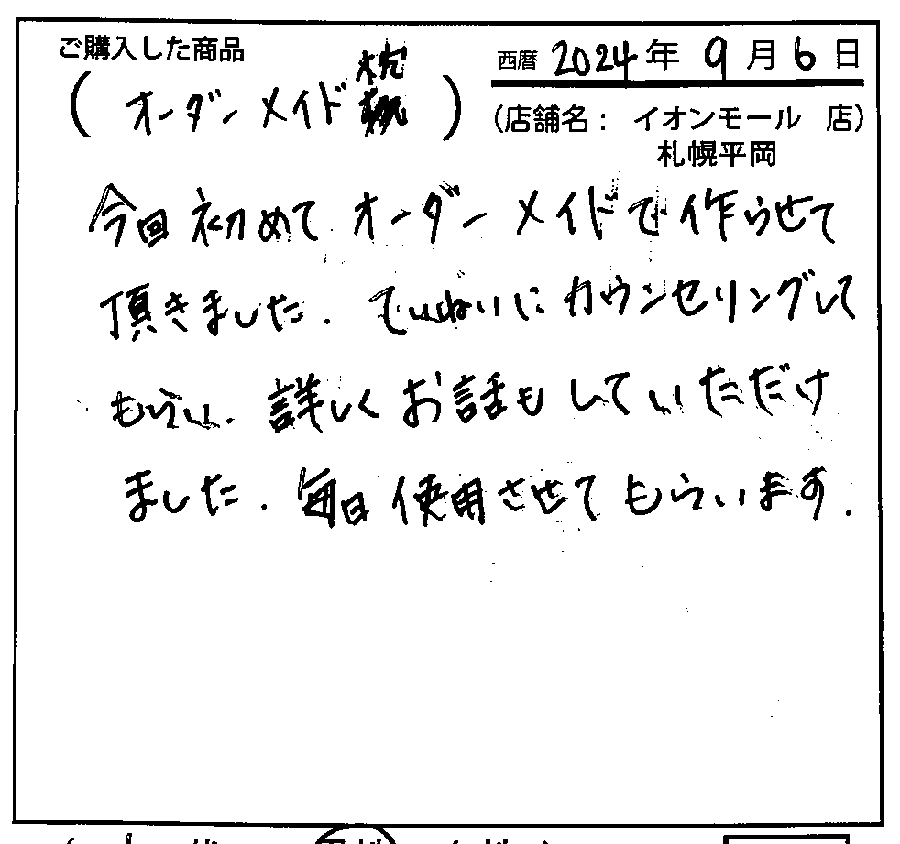 ご購入した商品
(オーダーメイド枕)
西暦 2024年 9月 6日
(店舗名: イオンモール 店)
札幌平岡
今回初めてオーダーメイドで作らせて
頂きました. ていねいにカウンセリングして
もらい. 詳しくお話もしていただけ
ました. 毎日使用させてもらいます.